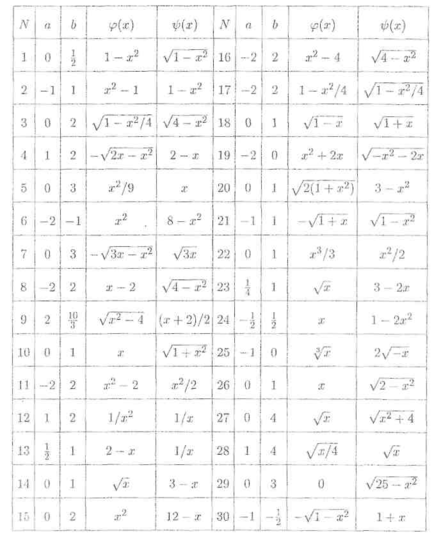 N a b φ(x) ψ(x) N a b φ(x) ψ(x)
1 0 1/2 1 − x² √(1 − x²) 16 −2 2 x² − 4 √(4 − x²)
2 −1 1 x² − 1 1 − x² 17 −2 2 1 − x²/4 √(1 − x²/4)
3 0 2 √(1 − x²/4) √(4 − x²) 18 0 1 √(1 − x) √(1 + x)
4 1 2 −√(2x − x²) 2 − x 19 −2 0 x² + 2x √(−x² − 2x)
5 0 3 x²/9 x 20 0 1 √(2(1 + x²)) 3 − x²
6 −2 −1 x² 8 − x² 21 −1 1 −√(1 + x) √(1 − x²)
7 0 3 −√(3x − x²) √(3x) 22 0 1 x³/3 x²/2
8 −2 2 x − 2 √(4 − x²) 23 1/4 1 √x 3 − 2x
9 2 10/3 √(x² − 4) (x + 2)/2 24 −1/2 1/2 x 1 − 2x²
10 0 1 x √(1 + x²) 25 −1 0 ∛x 2√(−x)
11 −2 2 x² − 2 x²/2 26 0 1 x √(2 − x²)
12 1 2 1/x² 1/x 27 0 4 √x √(x² + 4)
13 1/2 1 2 − x 1/x 28 1 4 √(x/4) √x
14 0 1 √x 3 − x 29 0 3 0 √(25 − x²)
15 0 2 x² 12 − x 30 −1 −1/2 −√(1 − x²) 1 + x